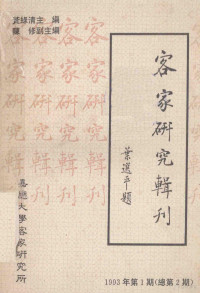 黃綠清主 編
龔 修副主編
客家研究輯刊
葉選平題
嘉應大學客家研究所
1993年第1期(總第2期)